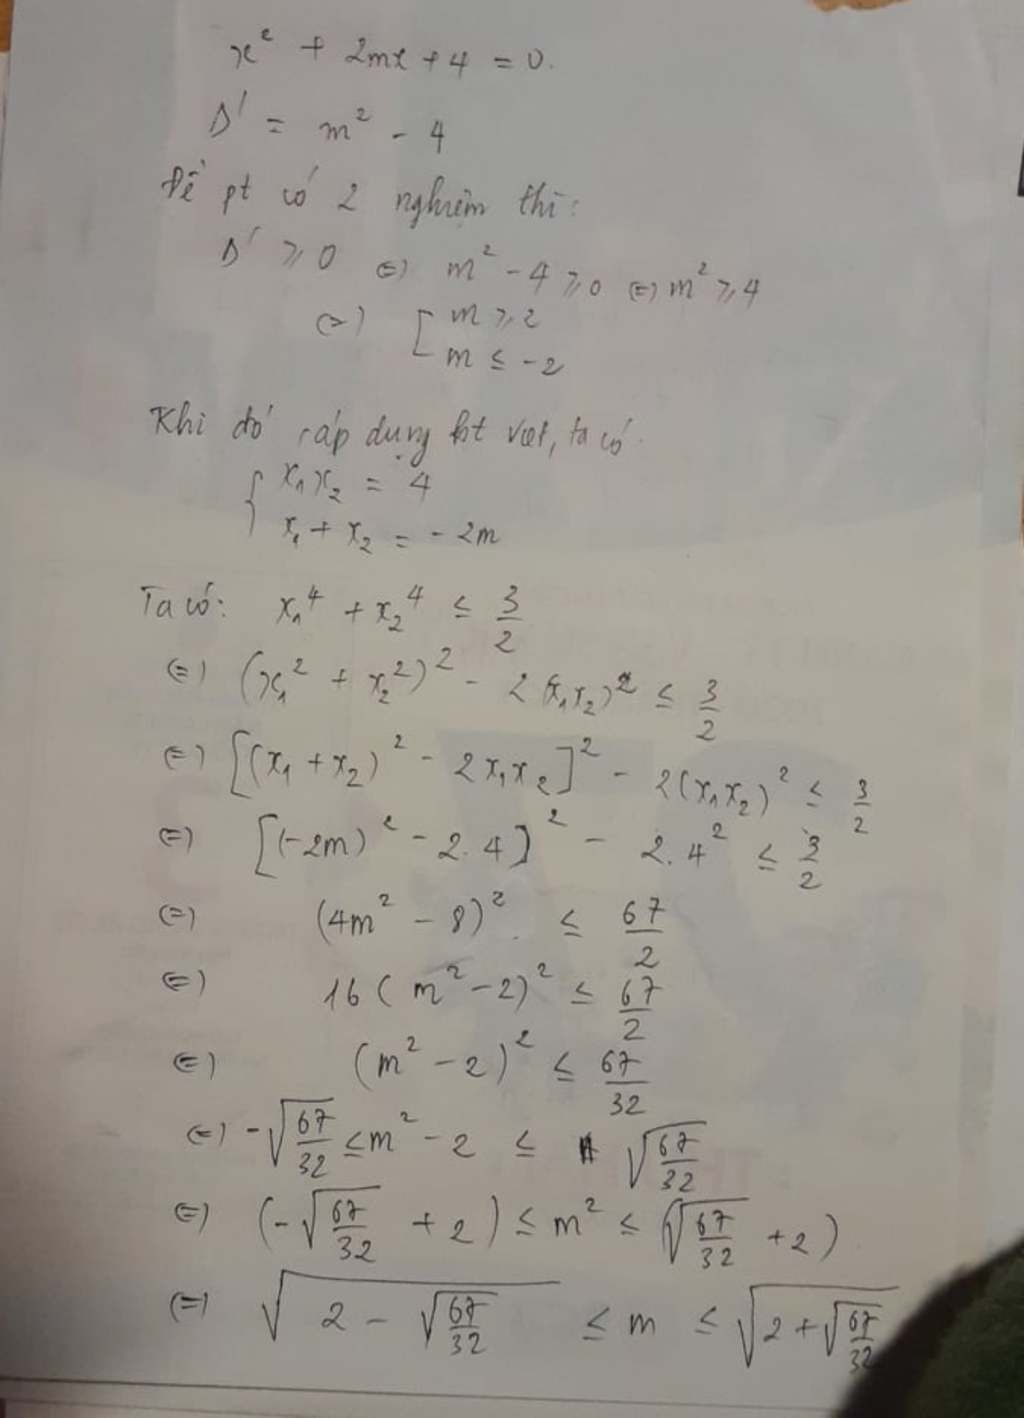 x² + 2mx + 4 = 0.
Δ' = m² - 4
Để pt có 2 nghiệm thì:
Δ' ≥ 0 (=) m² - 4 ≥ 0 (=) m² ≥ 4
(=) [ m ≥ 2
m ≤ -2
Khi đó, áp dụng đt viet, ta có
{ x₁x₂ = 4
x₁ + x₂ = -2m
Ta có: x₁⁴ + x₂⁴ ≤ 3/2
(=) (x₁² + x₂²)² - 2(x₁x₂)² ≤ 3/2
(=) [(x₁ + x₂)² - 2x₁x₂]² - 2(x₁x₂)² ≤ 3/2
(=) [(-2m)² - 2.4]² - 2.4² ≤ 3/2
(=) (4m² - 8)² ≤ 67/2
(=) 16(m² - 2)² ≤ 67/2
(=) (m² - 2)² ≤ 67/32
(=) -√(67/32) ≤ m² - 2 ≤ √(67/32)
(=) (-√(67/32) + 2) ≤ m² ≤ (√(67/32) + 2)
(=) √(2 - √(67/32)) ≤ m ≤ √(2 + √(67/32))